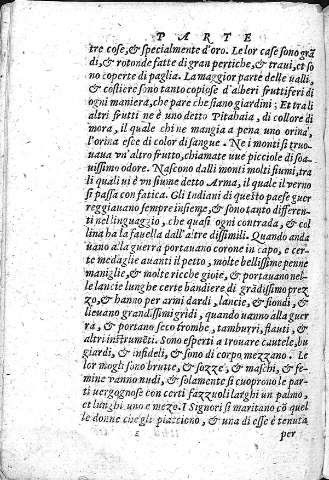 PARTE
tre cose, & specialmente d'oro. Le lor case sono grã
di, & rotonde fatte di gran pertiche, & traui, et so
no coperte di paglia. La maggior parte delle ualli,
& costiere sono tanto copiose d'alberi fruttiferi di
ogni maniera, che pare che siano giardini; Et tra li
altri frutti ne è uno detto Pitahaia, di collore di
mora, il quale chi ne mangia a pena uno orina,
l'orina esce di color di sangue. Ne i monti si truo-
uaua vn'altro frutto, chiamate uue picciole di soa-
uissimo odore. Nascono dalli monti molti fiumi, tra
li quali ui è vn fiume detto Arma, il quale il verno
si passa con fatica. Gli Indiani di questo paese guer
reggiauano sempre insieme, & sono tanto differen-
ti nel linguaggio, che quasi ogni contrada, & col
lina ha la fauella dall'altre dissimili. Quando anda
uano alla guerra portauano corone in capo, e cer-
te medaglie auanti il petto, molte bellissime penne
maniglie, & molte ricche gioie, & portauano nel-
le lancie lunghe certe bandiere di grãdissimo prez
zo, & hanno per armi dardi, lancie, & fiondi, &
lieuano grandissimi gridi, quando uanno alla guer
ra, & portano seco trombe, tamburri, flauti, &
altri instrumẽti. Sono esperti a trouare cautele, bu
giardi, & infideli, & sono di corpo mezzano. Le
lor mogli sono brutte, & sozze, & maschi, & fe-
mine vanno nudi, & solamente si cuoprono le par-
ti uergognose con certi fazzuoli larghi un palmo,
et lunghi uno e mezo. I Signori si maritano cõ quel
le donne che gli piacciono, & una di esse è tenuta
per